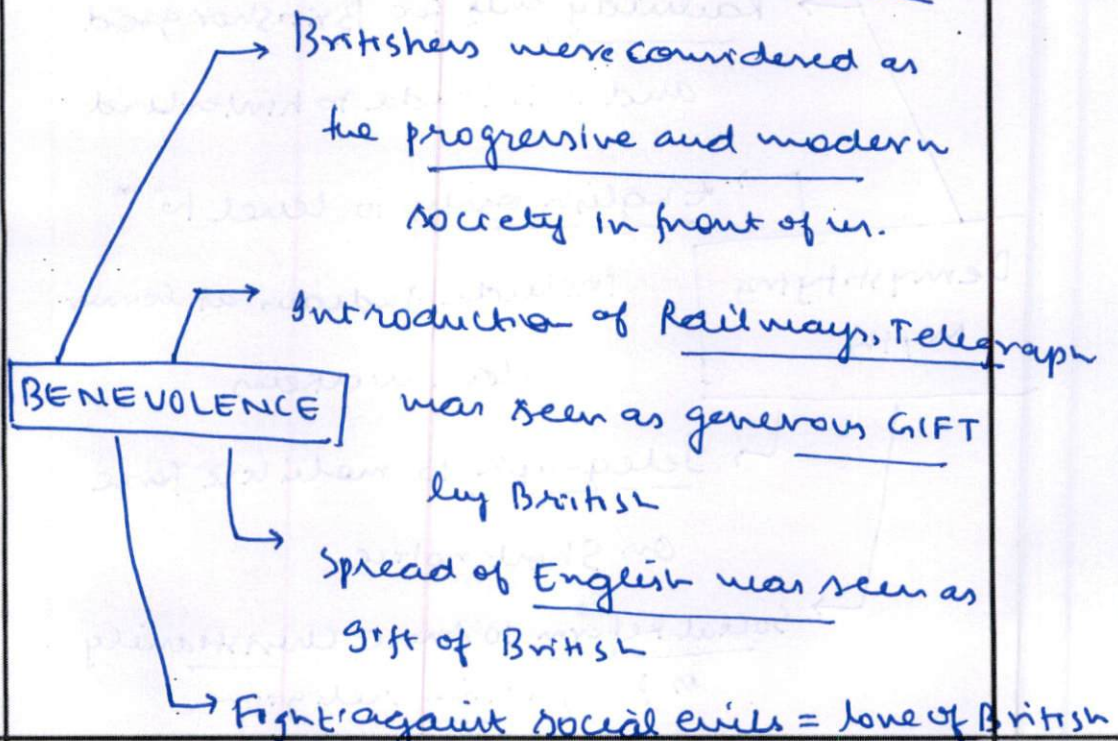 Britishers were considered as
the progressive and modern
society in front of us.
Introduction of Railways, Telegraph
BENEVOLENCE
was seen as generous GIFT
by British
Spread of English was seen as
gift of British
Fight against social evils = love of British